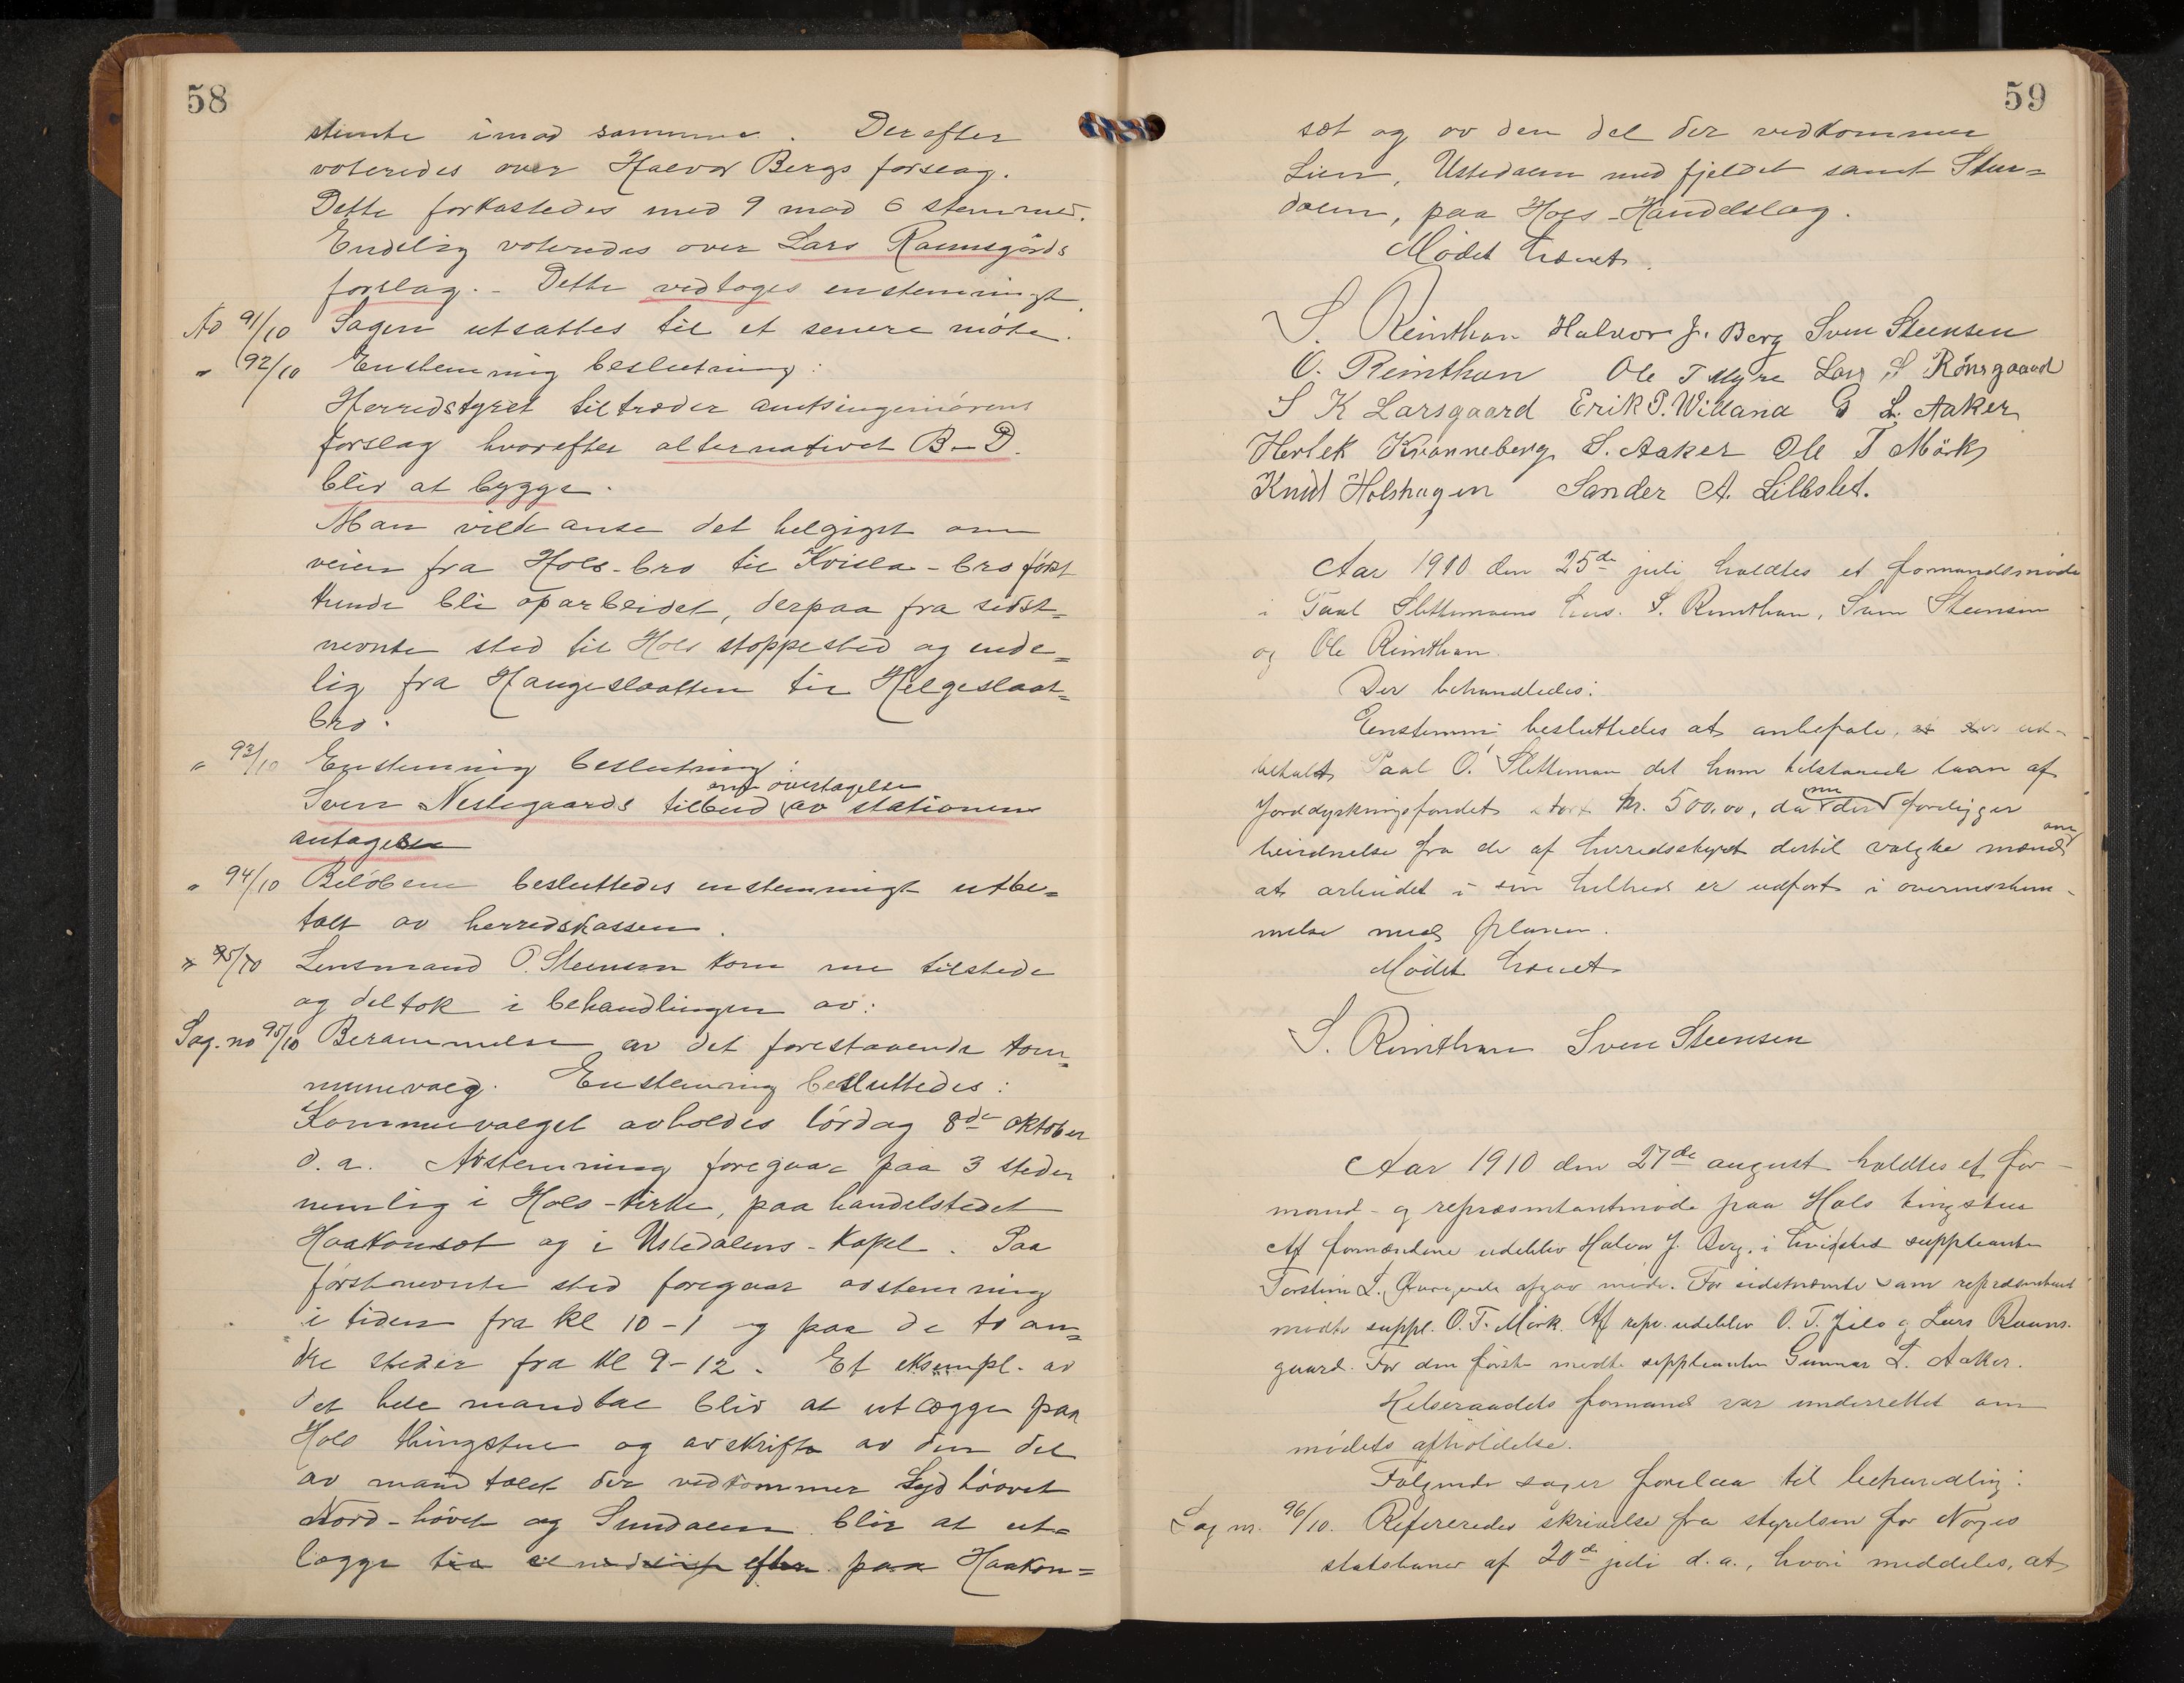 58
stemte imod samme. Derefter
voteredes over Halvor Bergs forslag.
Dette forkastedes med 9 mod 6 stemmer.
Endelig voteredes over Lars Raunsgårds
forslag. - Dette vedtoges enstemmigt.
No 91/10 Sagen utsattes til et senere møte.
" 92/10 Enstemmig beslutning:
Herredstyret tiltræder amtsingeniørens
forslag hvorefter alternativet B-D.
blir at bygge.
Man vilde anse det helgigst om
veien fra Hols-bro til Kvisla-bro først
kunde bli oparbeidet, derpaa fra sidst=
nevnte sted til Hols stoppested og ende=
lig fra Haugeslaatten til Helgeslaat=
bro.
" 93/10 Enstemmig beslutning:
om overtagelse
Sven Nestegaards tilbud av stationen
antages
" 94/10 Beløbene besluttedes enstemmigt utbe=
talt av herredskassen.
" 95/10 Lensmand O. Steensen kom nu tilstede
og deltok i behandlingen av:
Sag. no 95/10 Berammelse av det forestaaende kom=
munevalg. Enstemmig besluttedes:
Kommunevalget avholdes lørdag 8de oktober
d. a. Avstemning foregaar paa 3 steder
nemlig i Hols-kirke, paa handelstedet
Haakonset og i Ustedalens-kapel. Paa
førstnevnte sted foregaar avstemning
i tiden fra kl 10-1 og paa de to an=
dre steder fra kl 9-12. Et eksempl. av
det hele mandtal blir at utlægge paa
Hols thingstue og avskrifter av den del
av mandtalet der vedkommer Sydhøvet
Nord-høvet og Sundalen blir at ut=
lægge paa Haakon=
59
set og av den del der vedkommer
Lien, Ustedalen med fjeldet samt Skur=
dalen, paa Hols-Handelslag.
Mødet hævet.
S. Reinthon Halvor J. Berg Sven Steensen
O. Reinthon Ole T Myre Lars S Rønsgaard
S K Larsgaard Erik P. Willand G L. Aaker
Herlek Kvanneberg S. Aaker Ole T Mørk
Knut Holshagen Sander A. Lilleslet.
Aar 1910 den 25de juli holdtes et formandsmøde
i Paal Slettemoens hus. S. Reinthon, Sven Steensen
og Ole Reinthon.
Der behandledes:
Enstemmi besluttedes at anbefale, ud-
betalt Paal O. Slettemoen det ham tilstaaede laan af
Jorddyrkningsfondet stort kr. 500,00, da der nu foreligger
bevidnelse fra de af herredsstyret dertil valgte mænd om
at arbeidet i sin helhed er udført i overensstem-
melse med planen.
Mødet hævet
S. Reinthon Sven Steensen
Aar 1910 den 27de august holdtes et for-
mand- og repræsentantmøde paa Hols tingstue
Af formændene udeblev Halvor J. Berg, i hvis sted suppleanten
Torstein L. afgav møde. For sidstnævnte som repræsentant
mødte suppl. O. T. Mørk. Af repr. udeblev O. T. Jelo og Lars Rauns-
gaard. For den første mødte suppleanten Gunnar L. Aaker.
Helseraadets formand var underrettet om
mødets afholdelse.
Følgende sager forelaa til behandling:
Sag nr. 96/10. Refereredes skrivelse fra styrelsen for Norges
statsbaner af 20de juli d. a., hvori meddeles, at